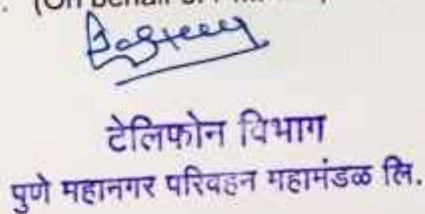 (On behalf of
टेलिफोन विभाग
पुणे महानगर परिवहन महामंडळ लि.